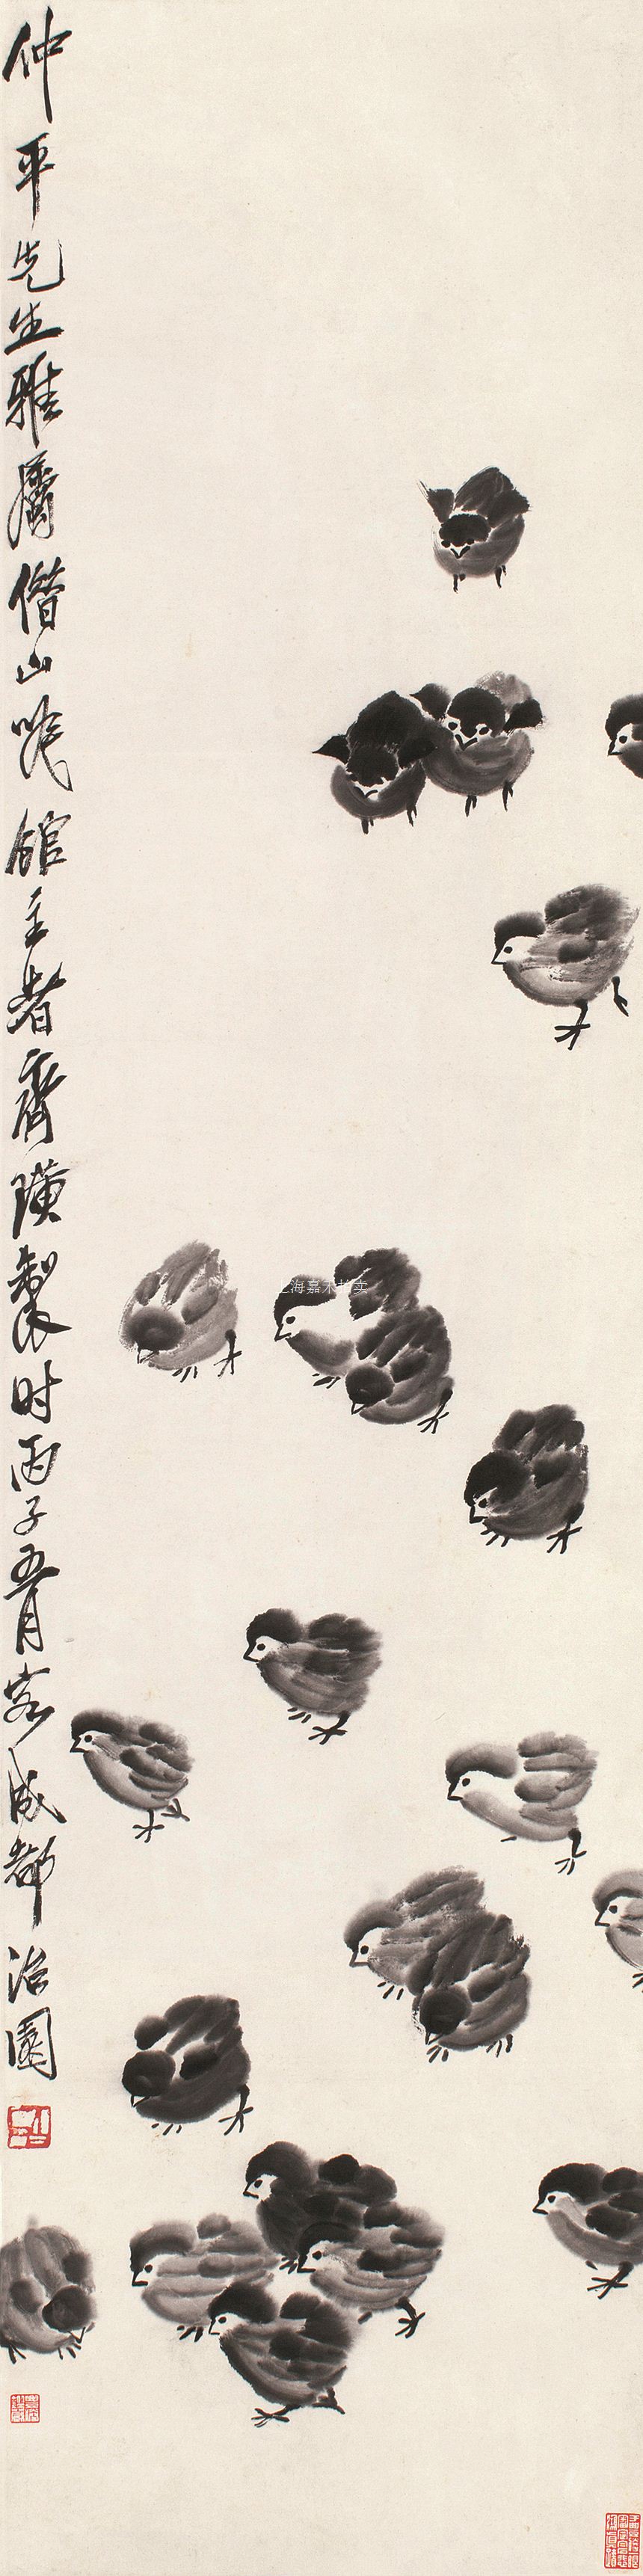 仲平先生雅属借山吟馆主者齐璜制时丙子五月客成都治园
上海嘉禾拍卖